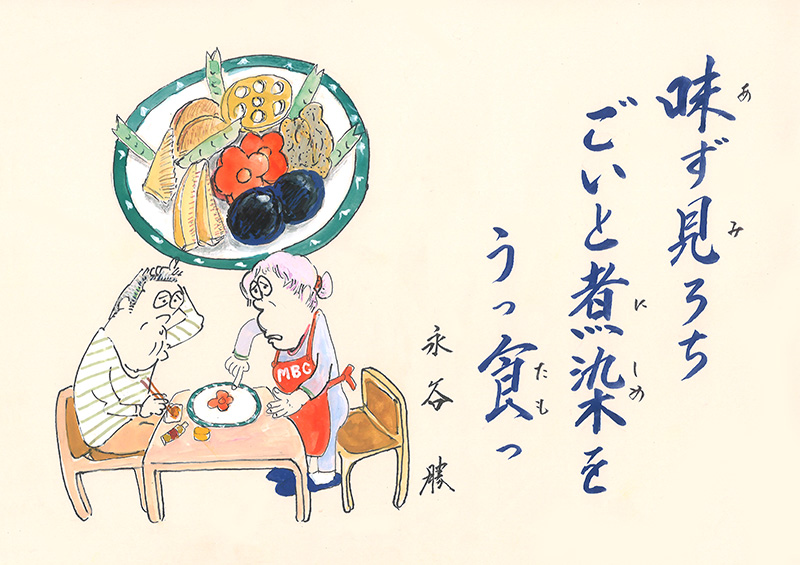 味ず見ろち
ごいと煮染を
うっ食っ
あ
み
に
しめ
たも
永谷 勝
MBC